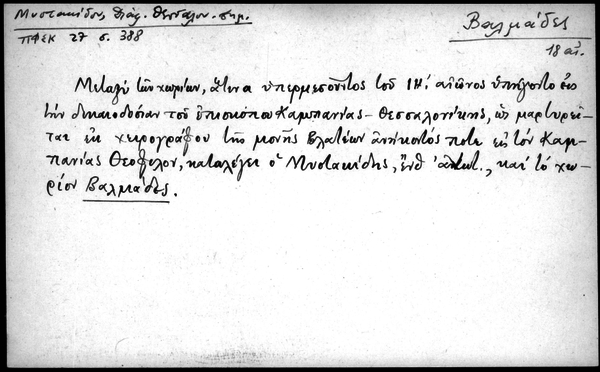 Μυστακίδου, Διάφ. Θεσσαλον. σημ.
ΠΦΣΚ 27 σ. 388
Βαλμάδες
18 αἰ.
Μεταξὺ τῶν χωρίων, ἅτινα ὑπερμεσοῦντος τοῦ ΙΗ! αἰῶνος ὑπήγοντο εἰς
τὴν δικαιοδοσίαν τοῦ ἐπισκόπου Καμπανίας - Θεσσαλονίκης, ὡς μαρτυρεῖ-
ται ἐκ χειρογράφου τῆς μονῆς Βλατέων ἀνήκοντός ποτε εἰς τὸν Καμ-
πανίας Θεόφιλον, καταλέγει ὁ Μυστακίδης, ἔνθ' ἀνωτ., καὶ τὸ χω-
ρίον Βαλμάδες.